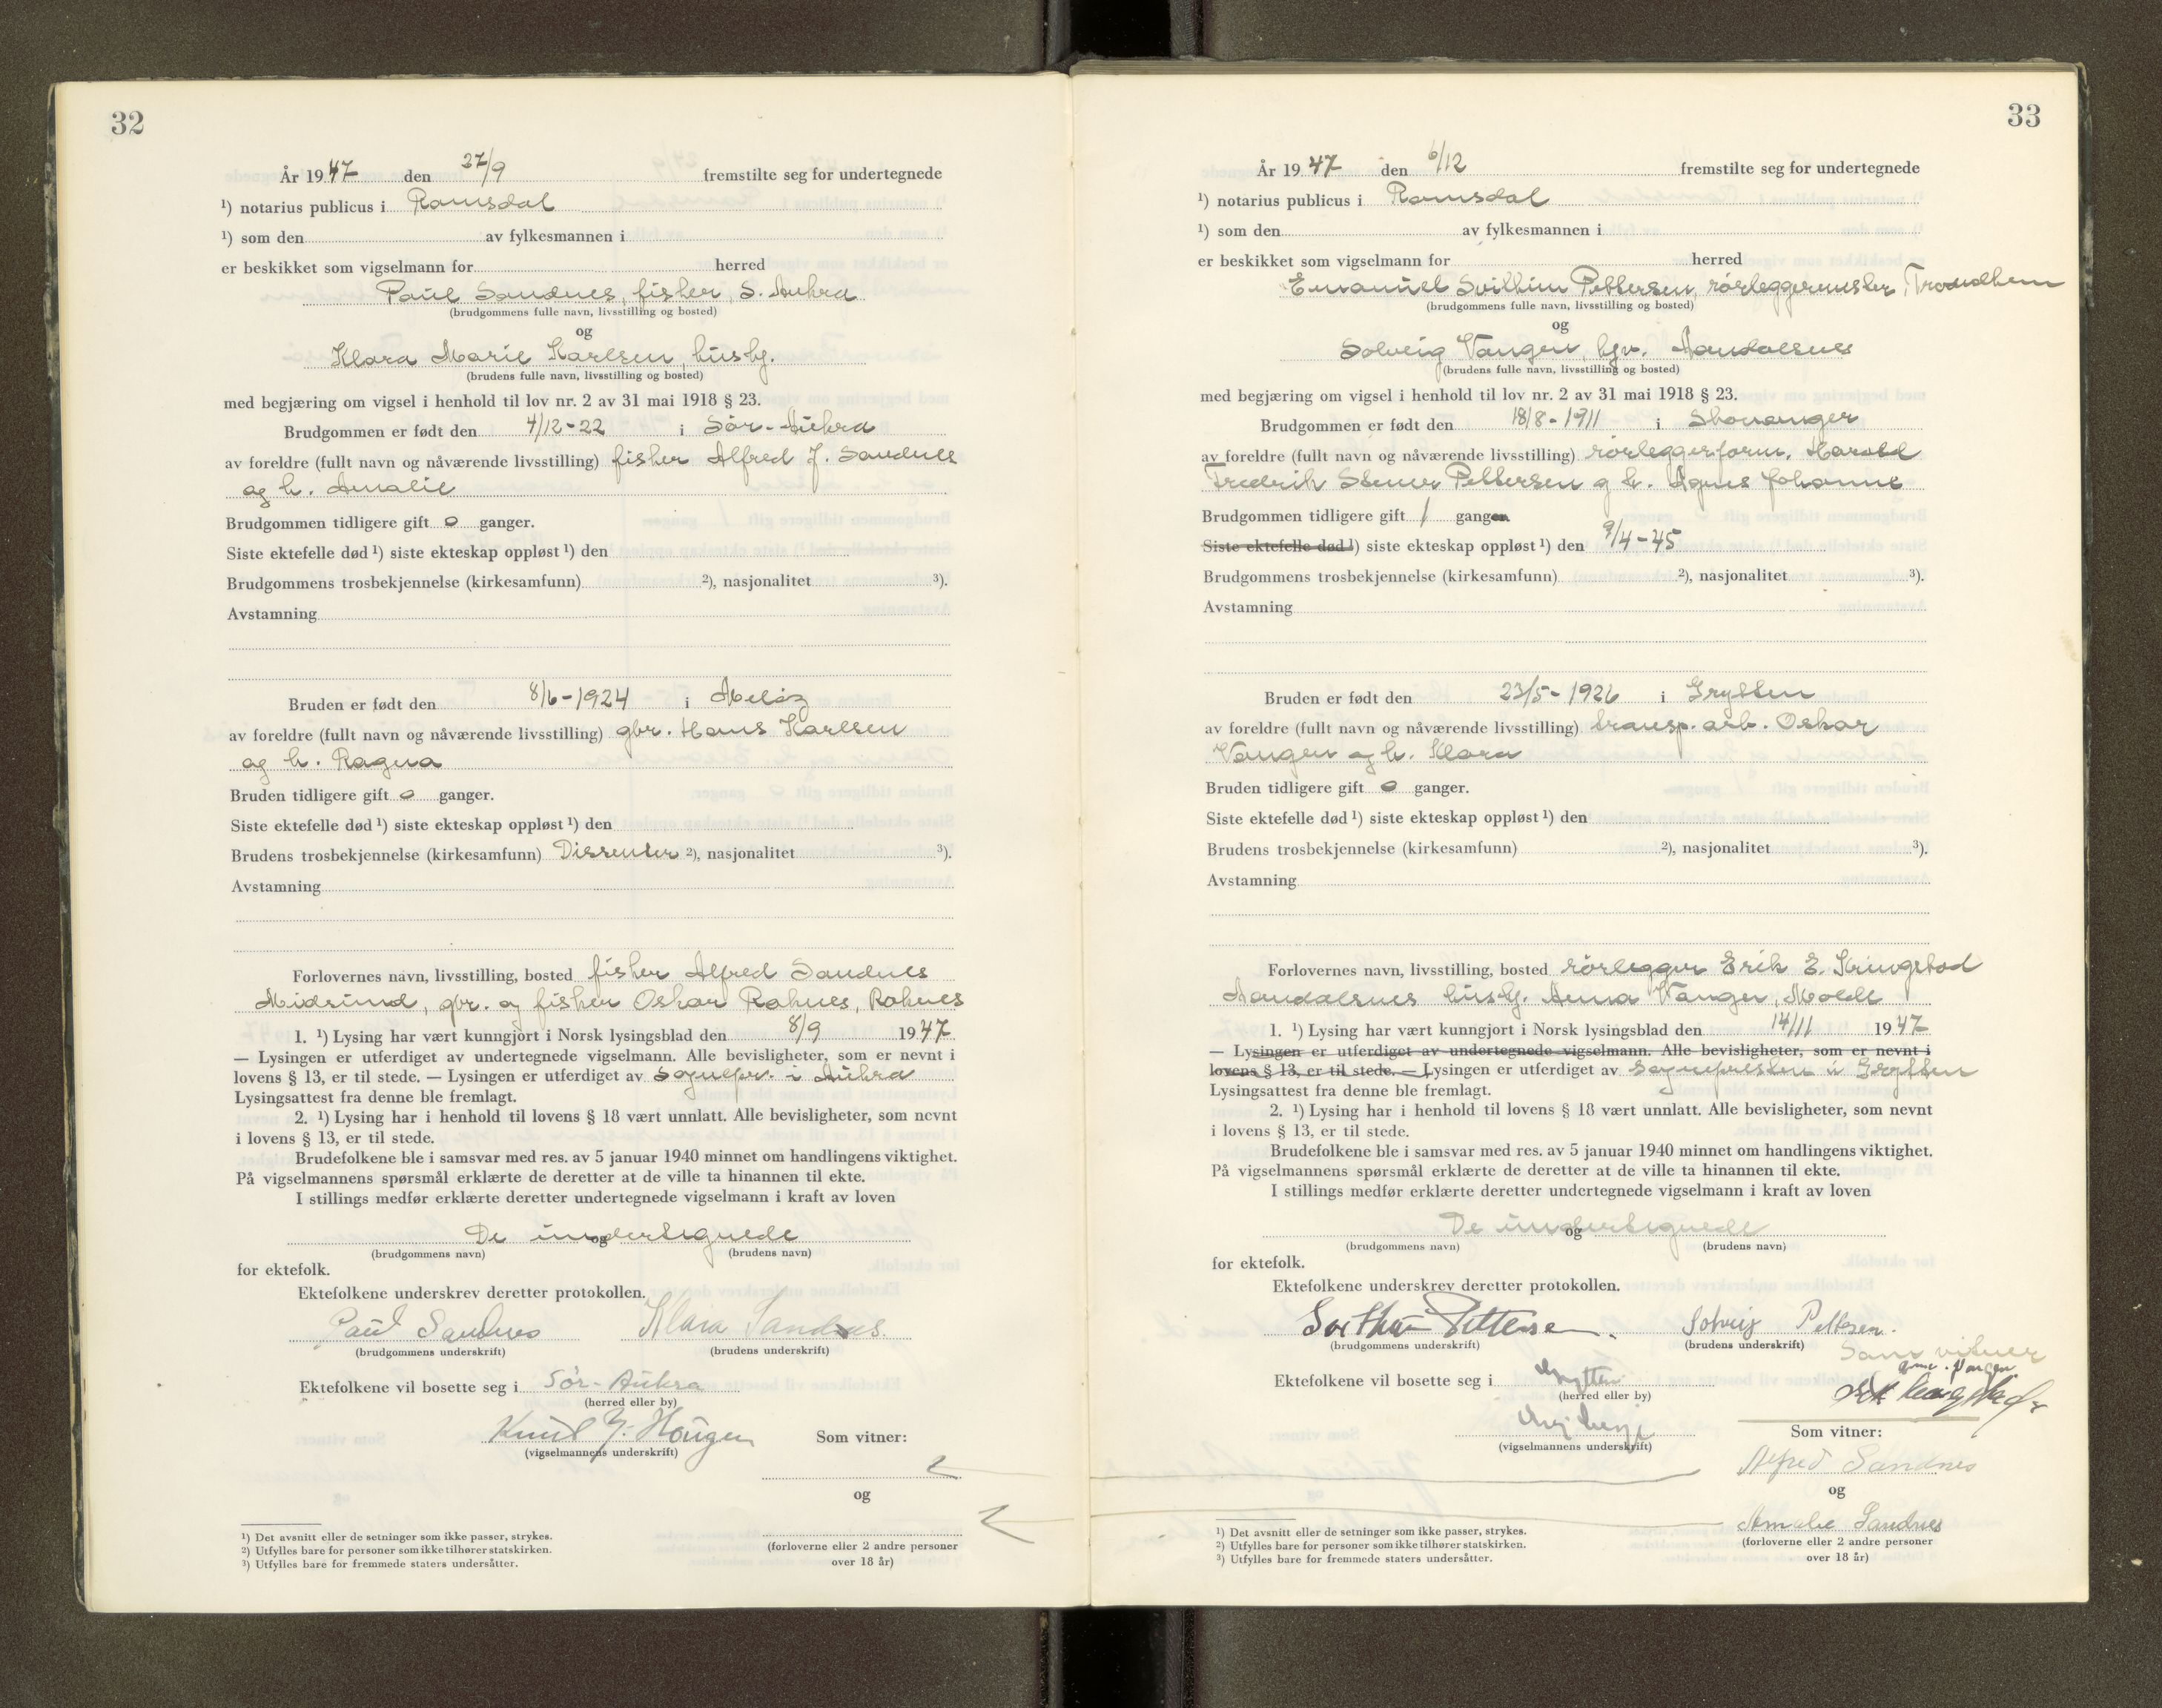 32
År 1947 den 27/9 fremstilte seg for undertegnede
¹) notarius publicus i Romsdal
¹) som den av fylkesmannen i
er beskikket som vigselmann for herred
Paul Sandnes, fisker, S. Aukra
(brudgommens fulle navn, livsstilling og bosted)
og
Klara Marie Karlsen, husbg.
(brudens fulle navn, livsstilling og bosted)
med begjæring om vigsel i henhold til lov nr. 2 av 31 mai 1918 § 23.
Brudgommen er født den 4/12-22 i Sør-Aukra
av foreldre (fullt navn og nåværende livsstilling) fisker Alfred J. Sandnes
og h. Amalie
Brudgommen tidligere gift 0 ganger.
Siste ektefelle død ¹) siste ekteskap oppløst ¹) den
Brudgommens trosbekjennelse (kirkesamfunn) ²), nasjonalitet ³).
Avstamning
Bruden er født den 8/6-1924 i Meløy
av foreldre (fullt navn og nåværende livsstilling) gbr. Hans Karlsen
og h. Ragna
Bruden tidligere gift 0 ganger.
Siste ektefelle død ¹) siste ekteskap oppløst ¹) den
Brudens trosbekjennelse (kirkesamfunn) Dissenter ²), nasjonalitet ³).
Avstamning
Forlovernes navn, livsstilling, bosted fisker Alfred Sandnes
Midsund, gbr. og fisker Oskar Raknes, Raknes
1. ¹) Lysing har vært kunngjort i Norsk lysingsblad den 8/9 1947
— Lysingen er utferdiget av undertegnede vigselmann. Alle bevisligheter, som er nevnt i
lovens § 13, er til stede. — Lysingen er utferdiget av sognepr. i Aukra
Lysingsattest fra denne ble fremlagt.
2. ¹) Lysing har i henhold til lovens § 18 vært unnlatt. Alle bevisligheter, som nevnt
i lovens § 13, er til stede.
Brudefolkene ble i samsvar med res. av 5 januar 1940 minnet om handlingens viktighet.
På vigselmannens spørsmål erklærte de deretter at de ville ta hinannen til ekte.
I stillings medfør erklærte deretter undertegnede vigselmann i kraft av loven
De undertegnede
og
(brudgommens navn) (brudens navn)
for ektefolk.
Ektefolkene underskrev deretter protokollen.
Paul Sandnes Klara Sandnes.
(brudgommens underskrift) (brudens underskrift)
Ektefolkene vil bosette seg i Sør-Aukra
(herred eller by)
Knut Hougen Som vitner:
(vigselmannens underskrift)
og
(forloverne eller 2 andre personer
over 18 år)
¹) Det avsnitt eller de setninger som ikke passer, strykes.
²) Utfylles bare for personer som ikke tilhører statskirken.
³) Utfylles bare for fremmede staters undersåtter.
33
År 1947 den 6/12 fremstilte seg for undertegnede
¹) notarius publicus i Romsdal
¹) som den av fylkesmannen i
er beskikket som vigselmann for herred
Emanuel Svithun Pettersen, rørleggermester, Trondheim
(brudgommens fulle navn, livsstilling og bosted)
og
Solveig Vangen, hjv. Aandalsnes
(brudens fulle navn, livsstilling og bosted)
med begjæring om vigsel i henhold til lov nr. 2 av 31 mai 1918 § 23.
Brudgommen er født den 18/8-1911 i Stavanger
av foreldre (fullt navn og nåværende livsstilling) rørleggerform. Harald
Fredrik Stener Pettersen og h. Agnes Johanne
Brudgommen tidligere gift 1 gang
Siste ektefelle død ¹) siste ekteskap oppløst ¹) den 9/4-45
Brudgommens trosbekjennelse (kirkesamfunn) ²), nasjonalitet ³).
Avstamning
Bruden er født den 23/5-1926 i Grytten
av foreldre (fullt navn og nåværende livsstilling) transp. arb. Oskar
Vangen og h. Klara
Bruden tidligere gift 0 ganger.
Siste ektefelle død ¹) siste ekteskap oppløst ¹) den
Brudens trosbekjennelse (kirkesamfunn) ²), nasjonalitet ³).
Avstamning
Forlovernes navn, livsstilling, bosted rørlegger Erik E. Kringstad
Aandalsnes husbg. Anna Vangen, Molde
1. ¹) Lysing har vært kunngjort i Norsk lysingsblad den 14/11 1947
— Lysingen er utferdiget av undertegnede vigselmann. Alle bevisligheter, som er nevnt i
lovens § 13, er til stede. — Lysingen er utferdiget av sognepresten i Grytten
Lysingsattest fra denne ble fremlagt.
2. ¹) Lysing har i henhold til lovens § 18 vært unnlatt. Alle bevisligheter, som nevnt
i lovens § 13, er til stede.
Brudefolkene ble i samsvar med res. av 5 januar 1940 minnet om handlingens viktighet.
På vigselmannens spørsmål erklærte de deretter at de ville ta hinannen til ekte.
I stillings medfør erklærte deretter undertegnede vigselmann i kraft av loven
De undertegnede
og
(brudgommens navn) (brudens navn)
for ektefolk.
Ektefolkene underskrev deretter protokollen.
Svithun Pettersen. Solveig Pettersen.
(brudgommens underskrift) (brudens underskrift)
Som vitner
Vangen
Ektefolkene vil bosette seg i Grytten
Kringstad
(herred eller by)
(vigselmannens underskrift)
Som vitner:
Alfred Sandnes
og
Amalie Sandnes
(forloverne eller 2 andre personer
over 18 år)
¹) Det avsnitt eller de setninger som ikke passer, strykes.
²) Utfylles bare for personer som ikke tilhører statskirken.
³) Utfylles bare for fremmede staters undersåtter.